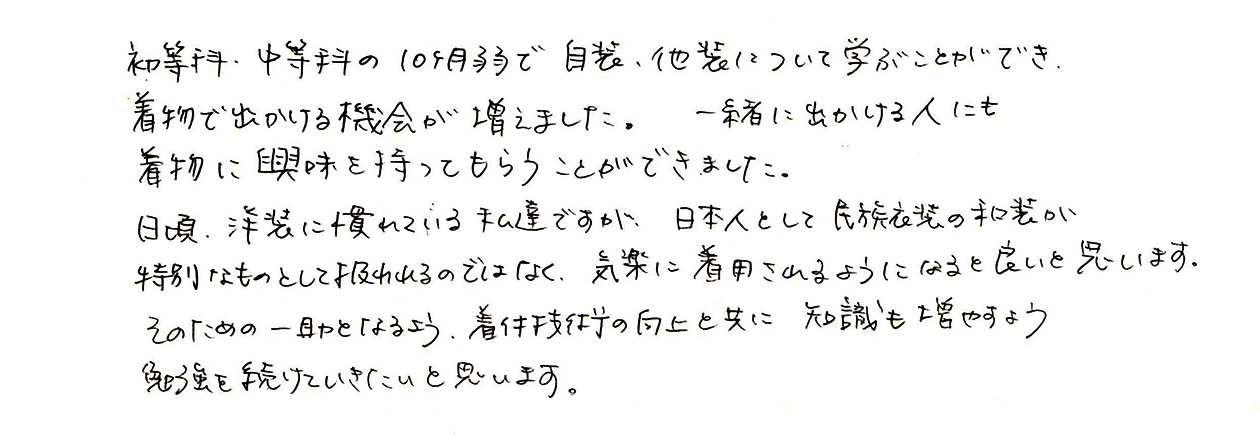 初等科・中等科の10ヶ月弱で自装、他装について学ぶことができ、
着物で出かける機会が増えました。 一緒に出かける人にも
着物に興味を持ってもらうことができました。
日頃、洋装に慣れている私達ですが、日本人として民族衣装の和装が
特別なものとして扱われるのではなく、気楽に着用されるようになると良いと思います。
そのための一助となるよう、着付技術の向上と共に 知識も増やすよう
勉強を続けていきたいと思います。